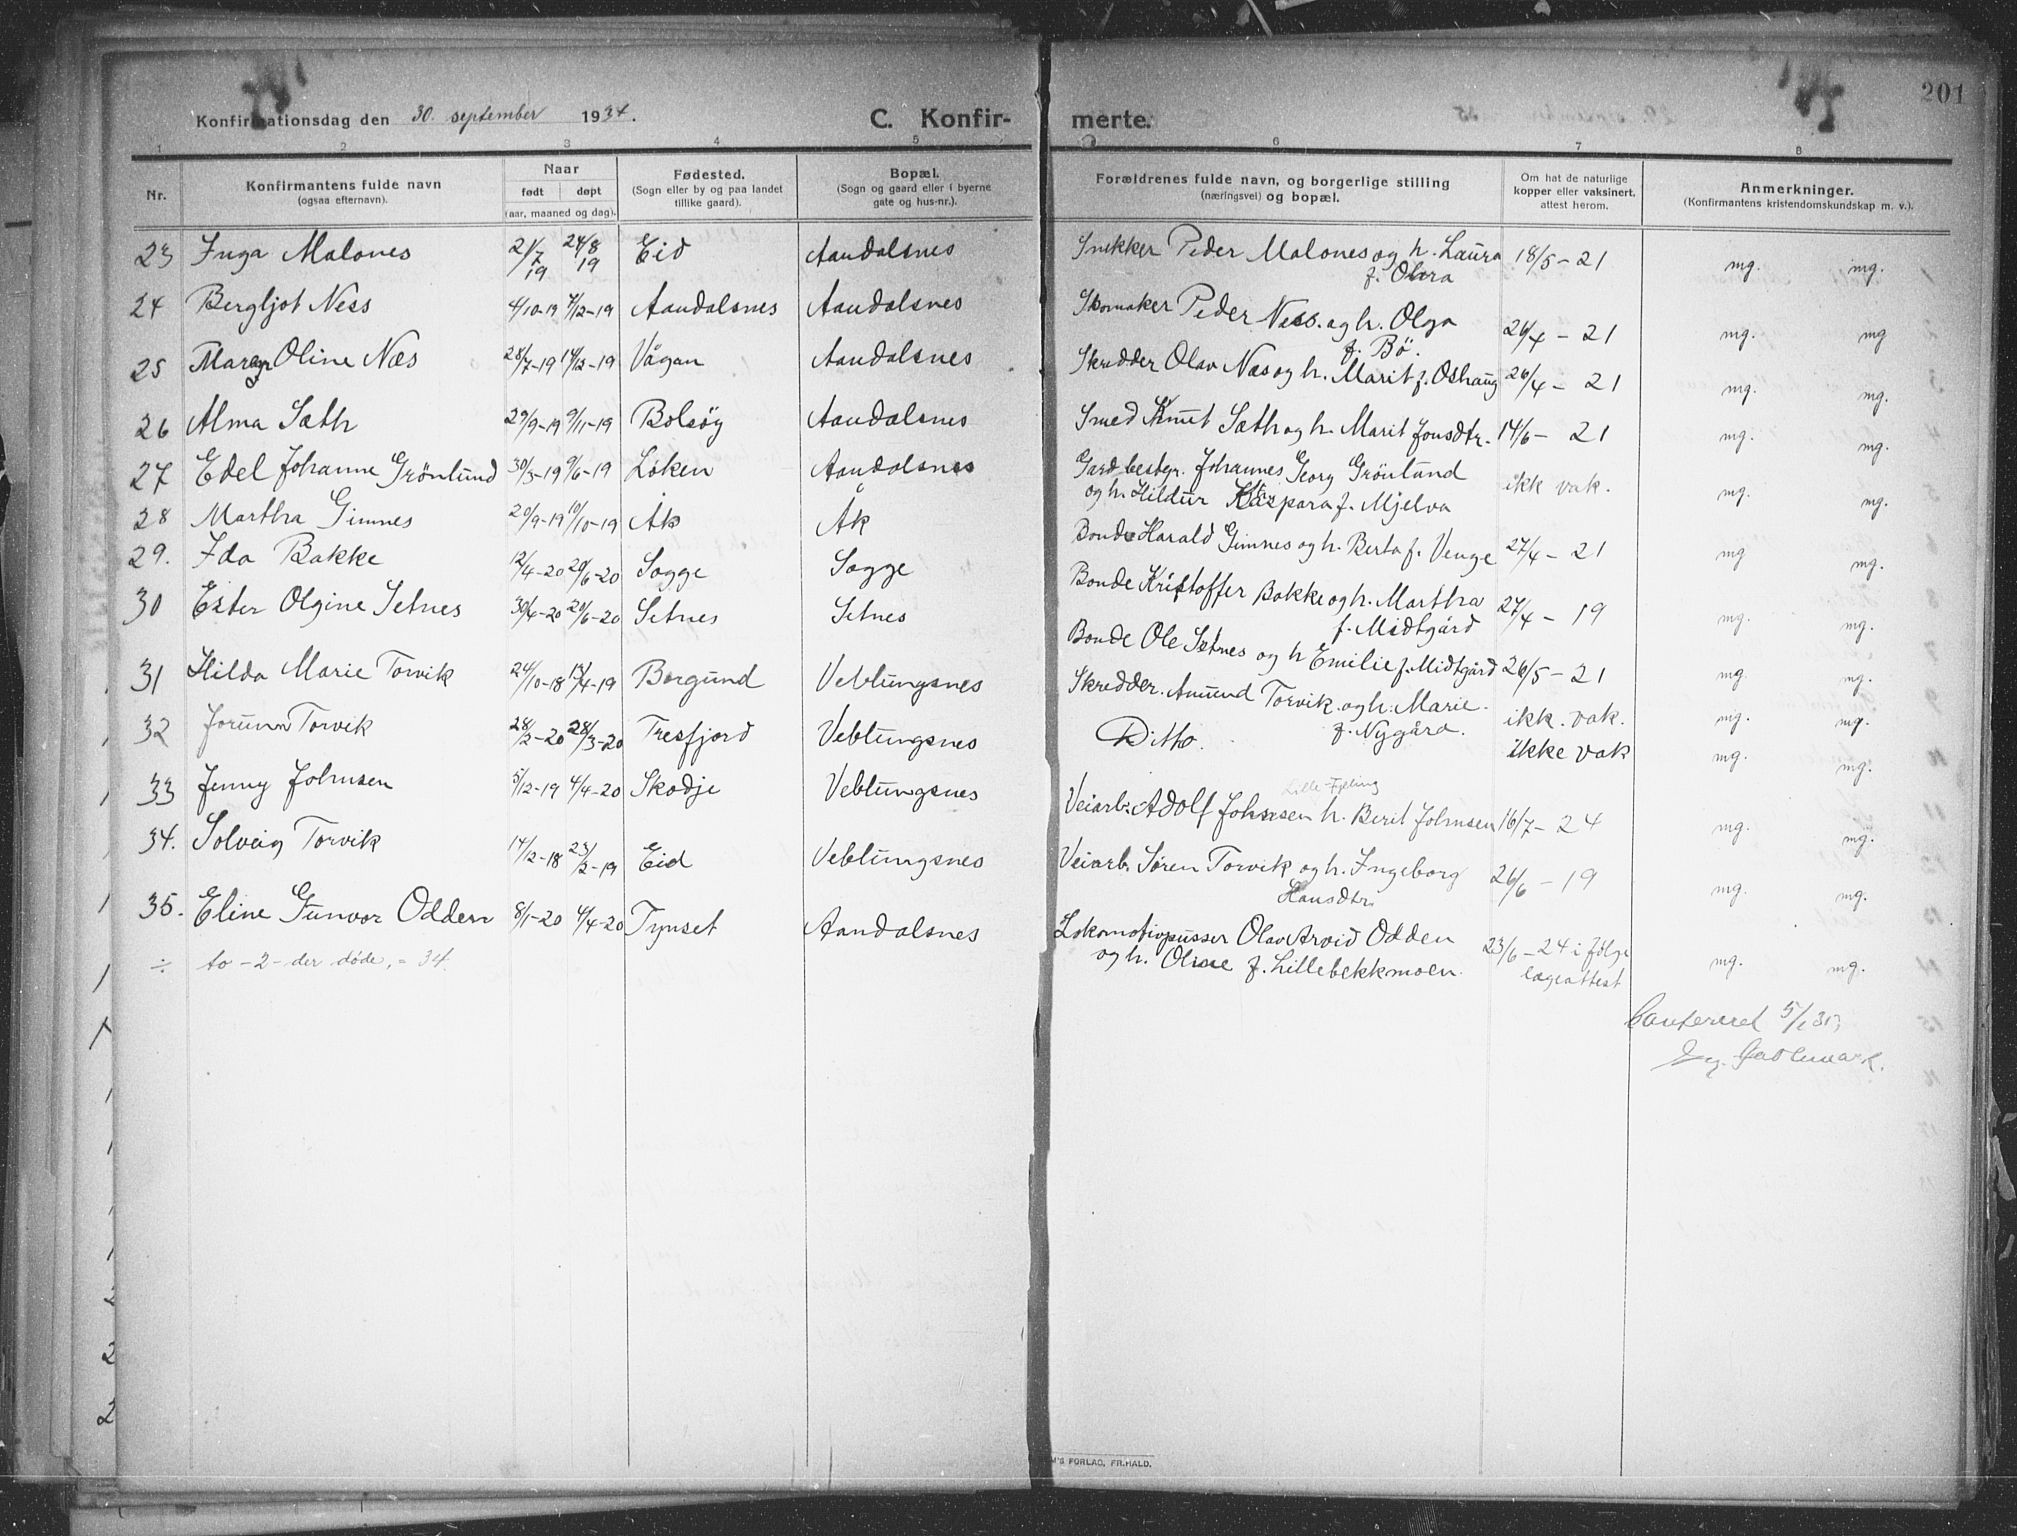 201
Konfirmationsdag den 30. september 1934.
C. Konfir- merte.
1 2 3 4 5 6 7 8
Nr.
Konfirmantens fulde navn
(ogsaa efternavn).
Naar
født døpt
(aar, maaned og dag).
Fødested.
(Sogn eller by og paa landet
tillike gaard).
Bopæl.
(Sogn og gaard eller i byerne
gate og hus-nr.).
Forældrenes fulde navn, og borgerlige stilling
(næringsvei) og bopæl.
Om hat de naturlige
kopper eller vaksinert,
attest herom.
Anmerkninger.
(Konfirmantens kristendomskundskap m. v.).
23 Inga Malones 21/7 19 24/8 19 Eid Aandalsnes Snekker Peder Malones og h. Laura 18/5 - 21 mg. mg.
f. Olvra
24 Bergljot Ness 4/10-19 7/12-19 Aandalsnes Aandalsnes Skomaker Peder Ness. og h. Olga 26/4 - 21 mg. mg
f. Bö.
25 Margr Oline Næs 28/7-19 14/12-19 Vågan Aandalsnes Skredder Olav Næs og h. Marit f. Oshaug 26/4 - 21 mg. mg.
26 Alma Sæth 29/9-19 9/11-19 Bolsöy Aandalsnes Smed Knut Sæth og h. Marit Jonsdtr. 14/6 - 21 mg. mg.
27 Edel Johanne Grönlund 30/3-19 9/6-19 Løken Aandalsnes Gardbestyr. Johannes Georg Grönlund ikk vak. mg. mg.
og h. Hildur Kaspara f. Mjelva
28 Martha Gimnes 20/9-19 10/10-19 Åk Åk Bonde Harald Gimnes og h. Berta f. Venge 27/4 - 21 mg mg.
29. Ida Bakke 12/4-20 20/6-20 Sogge Sogge Bonde Kristoffer Bakke og h. Martha 27/4 - 19 mg. mg.
f. Midtgård
30 Ester Olgine Setnes 30/4-20 20/6-20 Setnes Setnes Bonde Ole Setnes og h Emilie f. Midtgård 26/5 - 21 mg. mg.
31 Hilda Marie Torvik 24/10-18 13/4-19 Borgund Veblungsnes Skredder. Amund Torvik og h. Marie. ikk. vak. mg. mg.
f. Nygård.
32 Jorunn Torvik 28/2-20 28/3-20 Tresfjord Veblungsnes Ditto. ikke vak mg. mg.
33 Jenny Johnsen 5/12-19 4/4-20 Skodje Veblungsnes Veiarb. Adolf Johnsen h. Berit Johnsen 16/7 - 24 mg. mg.
34. Solveig Torvik 14/12-18 23/2-19 Eid Veblungsnes Veiarb. Søren Torvik og h. Ingeborg 26/6 - 19 mg. mg.
Hansdtr.
35. Eline Gunvor Odden 8/1-20 4/4-20 Tynset Aandalsnes Lokomotivpusser Olav Arvid Odden 23/6 - 24 i følge mg. mg.
og h. Oline f. Lillebekkmoen. lægeattest
÷ to - 2 - der døde, = 34.
M'S FORLAG, FR. HALD.